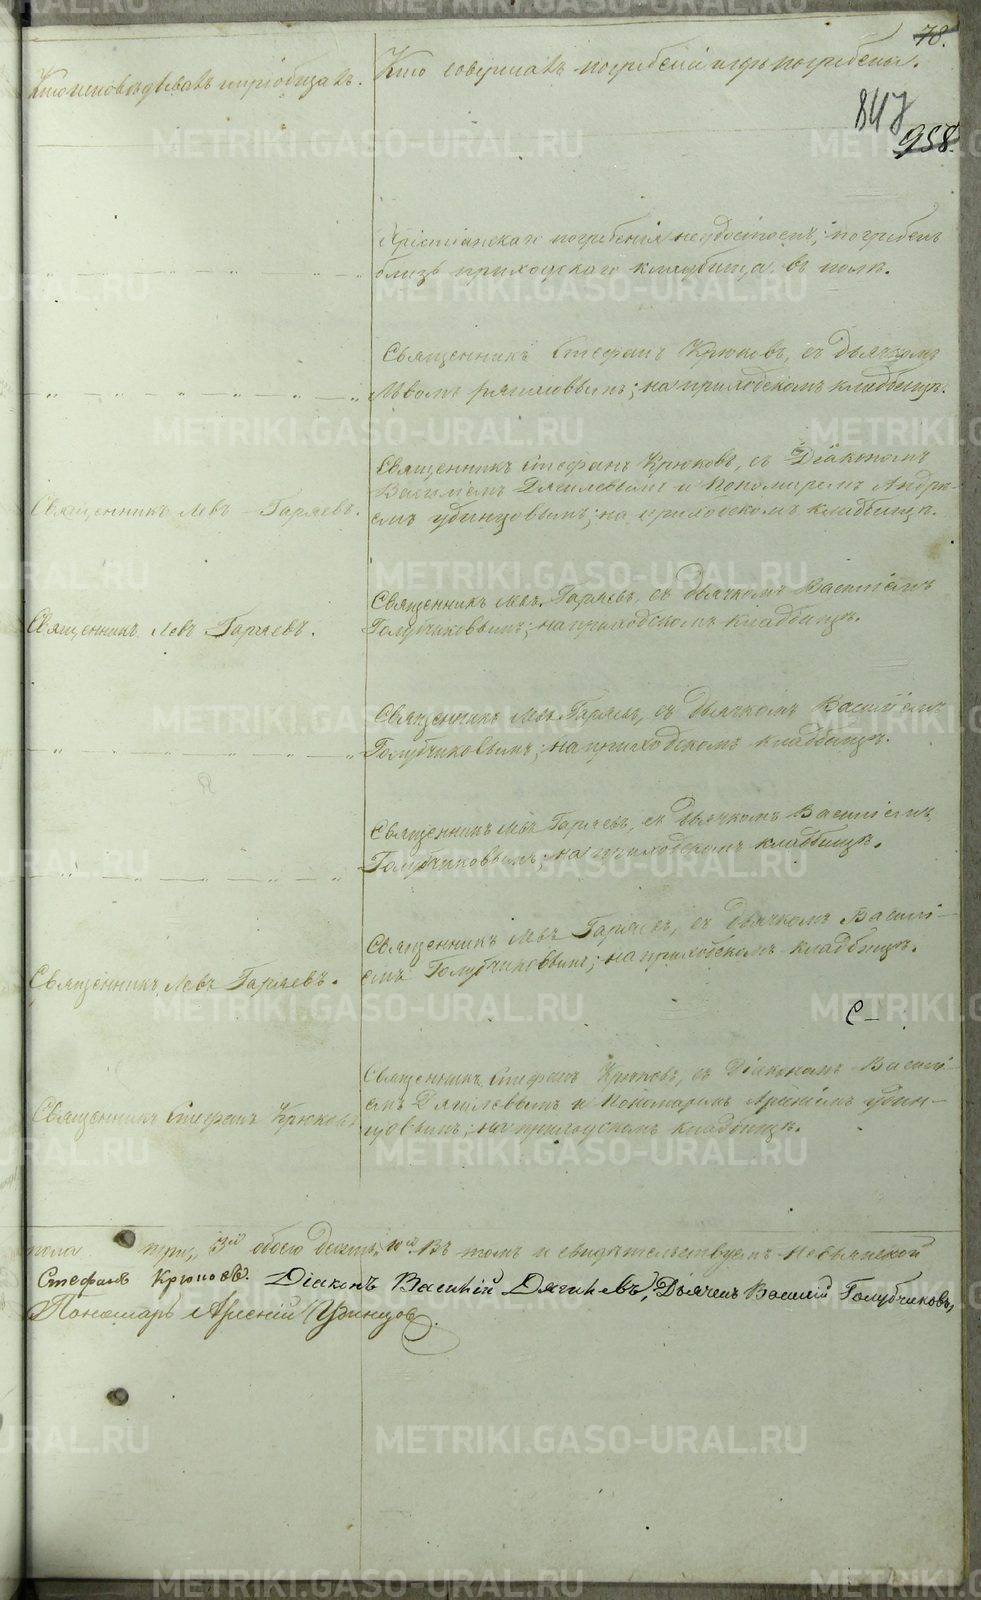 78.
Кто исповѣдывалъ и пріобщалъ.
Кто совершалъ погребеніе и гдѣ погребены.
847
958.
Христіанскаго погребенія не удостоенъ; погребенъ
близь приходскаго кладбища въ полѣ.
Священникъ Стефанъ Крюковъ, съ дьячкомъ
Львомъ; на приходскомъ кладбищѣ.
Священникъ Левъ Гаряевъ.
Священникъ Стефанъ Крюковъ, съ Діакономъ
Василіемъ Дягилевымъ и Пономаремъ Андре-
емъ Удинцовымъ; на приходскомъ кладбищѣ.
Священникъ Левъ Гаряевъ.
Священникъ Левъ Гаряевъ, съ дьячкомъ Василіемъ
Голубчиковымъ; на приходскомъ кладбищѣ.
Священникъ Левъ Гаряевъ, съ дьячкомъ Василіемъ
Голубчиковымъ; на приходскомъ кладбищѣ.
Священникъ Левъ Гаряевъ, съ дьячкомъ Василіемъ
Голубчиковымъ; на приходскомъ кладбищѣ.
Священникъ Левъ Гаряевъ.
Священникъ Левъ Гаряевъ, съ дьячкомъ Васили-
емъ Голубчиковымъ; на приходскомъ кладбищѣ.
Священникъ Стефанъ Крюковъ
Священникъ Стефанъ Крюковъ, съ Діакономъ Васили-
емъ Дягилевымъ и Пономаремъ Арсеніемъ Удин-
цовымъ; на приходскомъ кладбищѣ.
пола три, 3й обоего десять, 10й. Въ томъ и свидѣтельствуемъ Невьянской
Стефанъ Крюковъ. Діаконъ Василій Дягилевъ, Дьячекъ Василій Голубчиковъ,
Пономарь Арсеній Удинцовъ.
METRIKI.GASO-URAL.RU